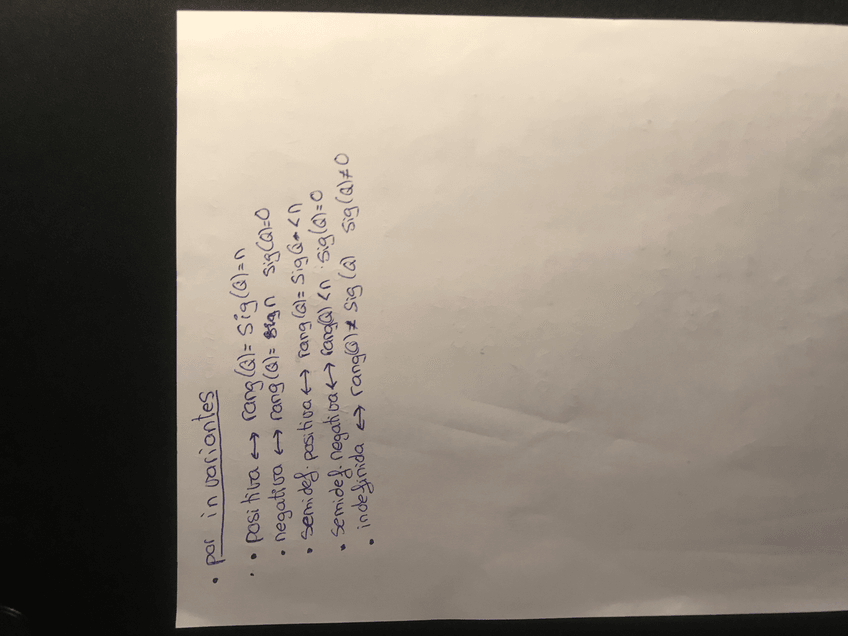 • por invariantes
• • positiva ↔ rang(Q) = sig(Q) = n
• negativa ↔ rang(Q) = n sig(Q)=0
• semidef. positiva ↔ rang(Q) = sig Q < n
• semidef. negativa ↔ rang(Q) < n · sig(Q)=0
• indefinida ↔ rang(Q) ≠ sig(Q) sig(Q) ≠ 0